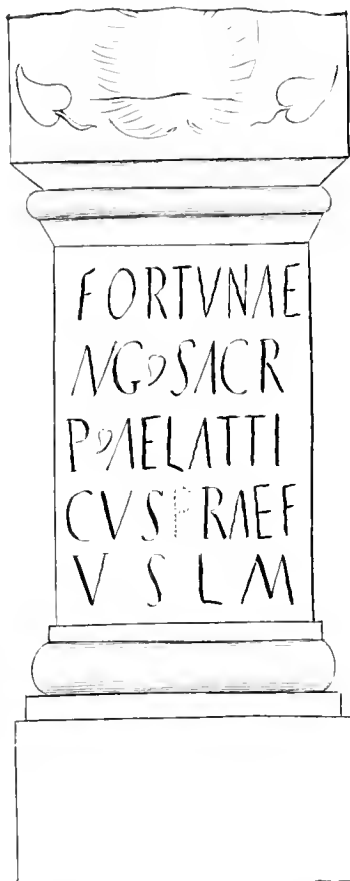 FORTVNAE
AVG ❧ SACR
P ❧ AELATTI
CVS PRAEF
V S L M